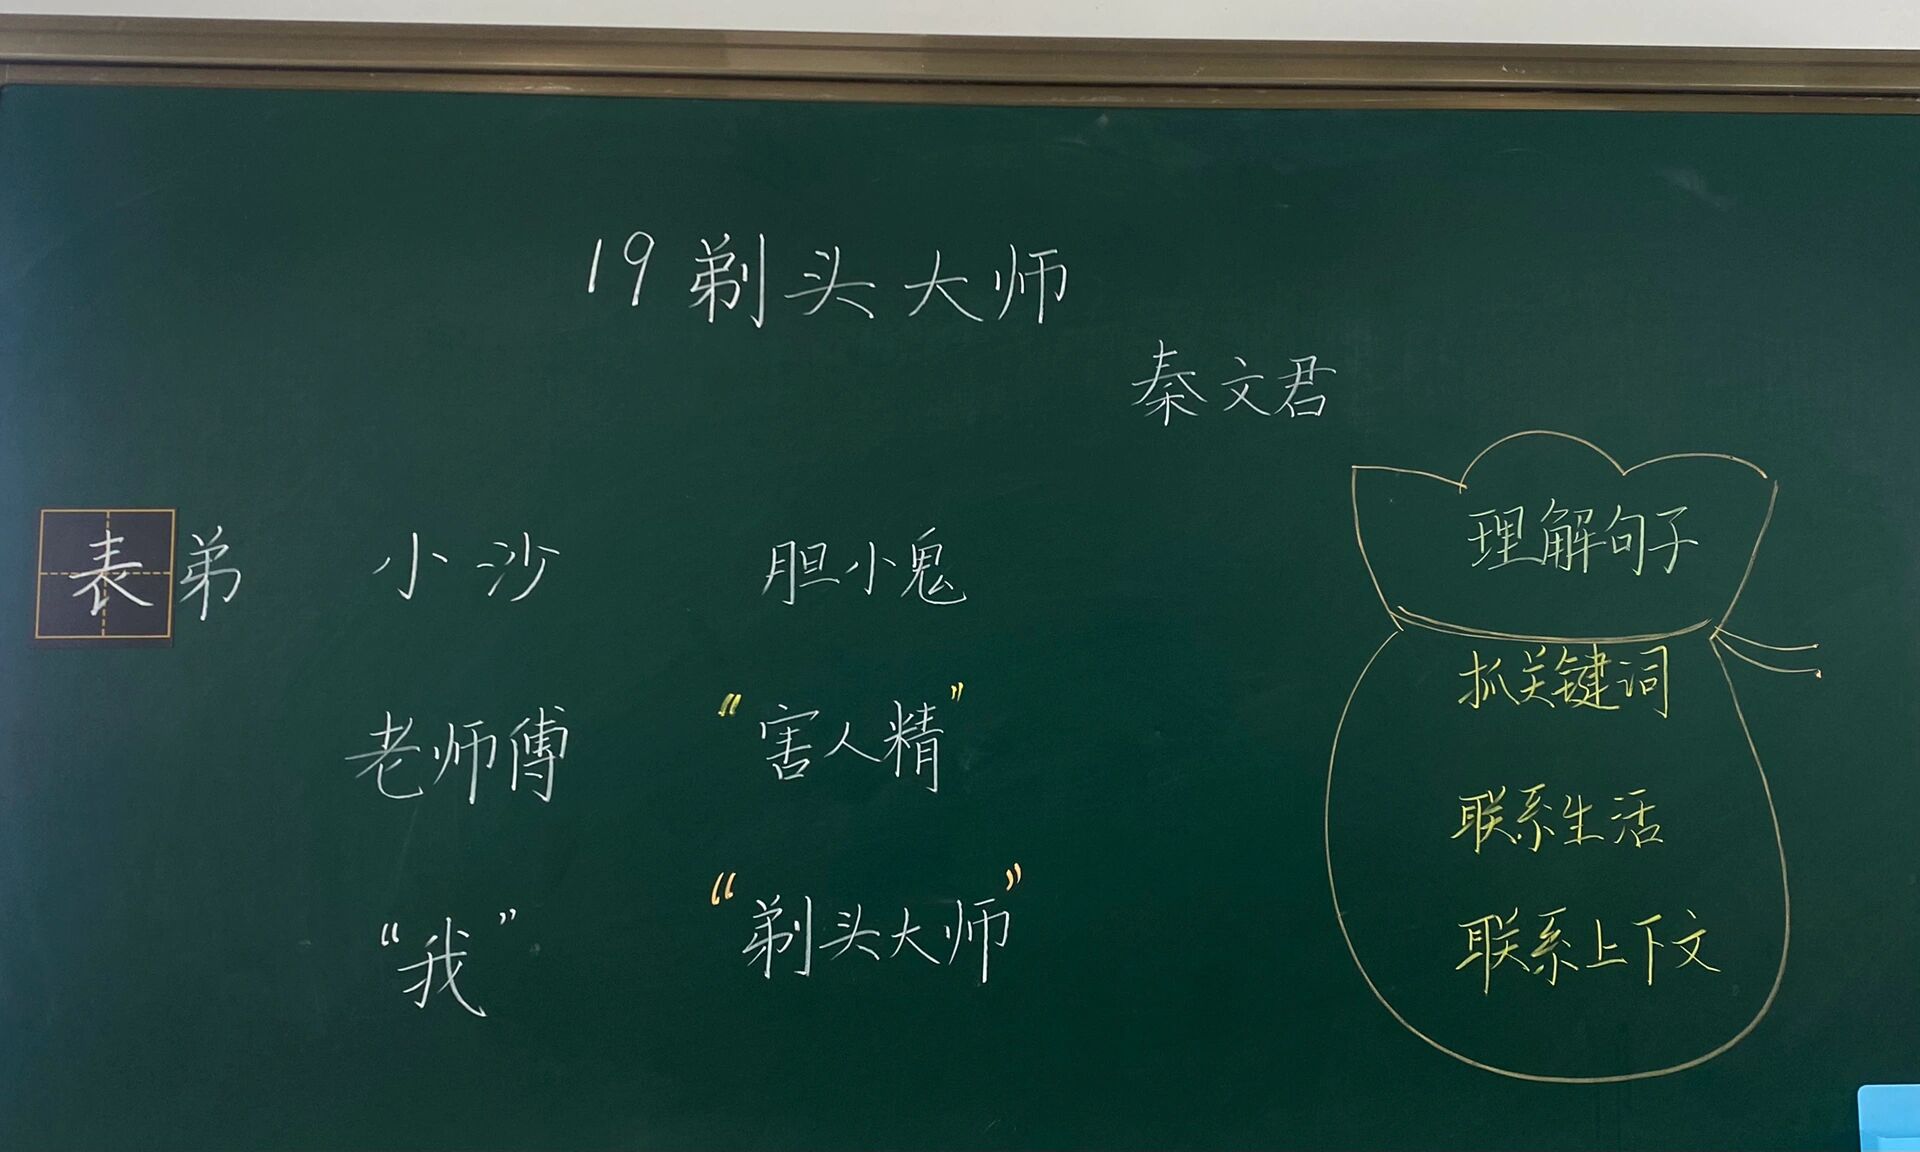 19 剃头大师
秦文君
表弟 小沙 胆小鬼
老师傅 “害人精”
“我” “剃头大师”
理解句子
抓关键词
联系生活
联系上下文